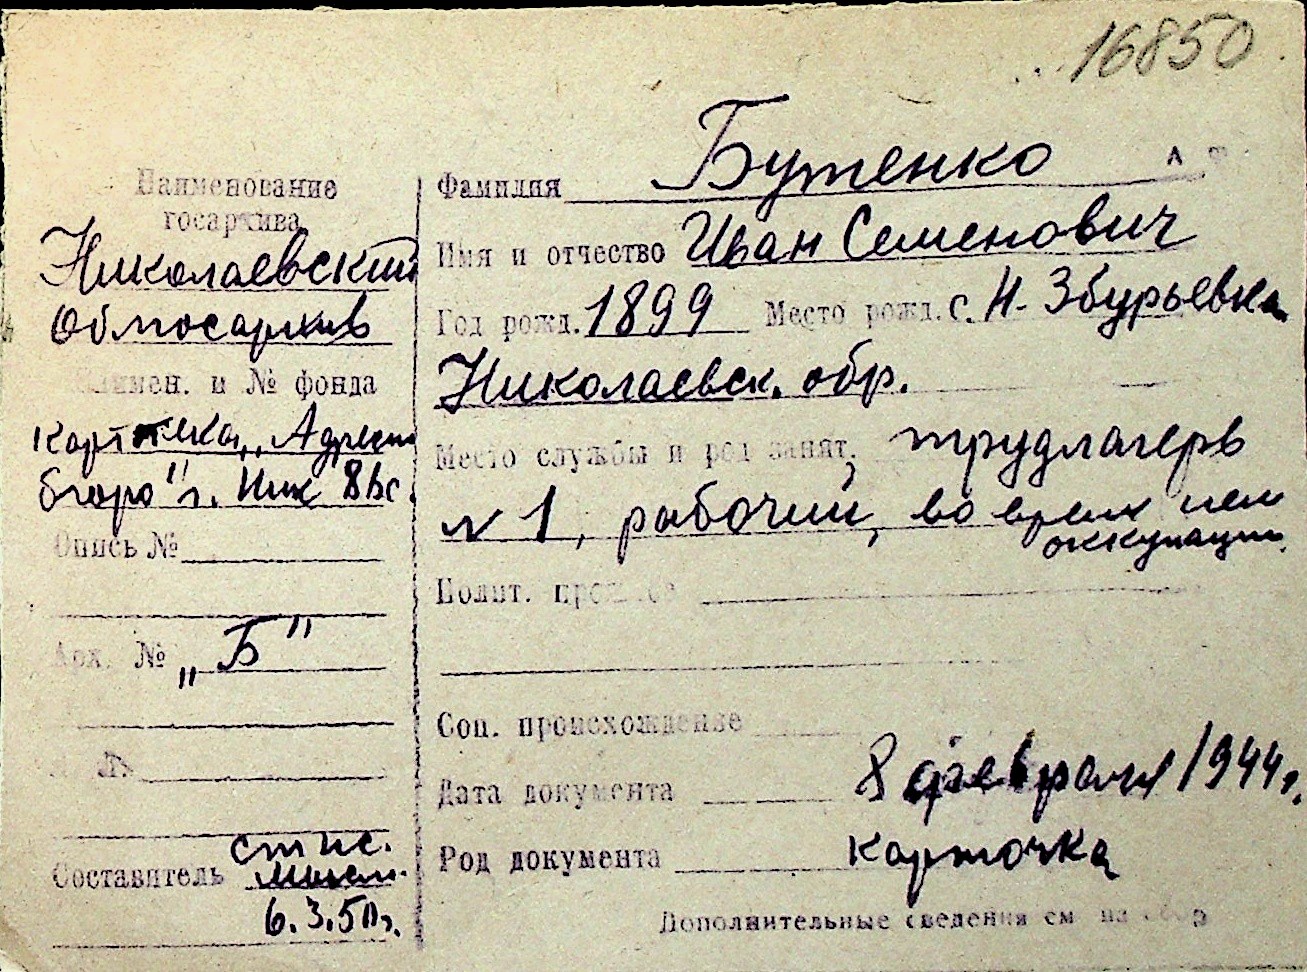 16850
Наименование
госархива
Николаевский
Облгосархив
и № фонда
картотека "Адресн
бюро" г. Ник
Опись №
Арх. № "Б"
Составитель
6.3.50г.
Фамилия Бутенко
Имя и отчество Иван Семенович
Год рожд. 1899 Место рожд. с. Н. Збурьевка
Николаевск. обр.
Место службы и род занят. трудлагерь
№ 1, рабочий, во время нем
оккупации.
Полит.
Соц. происхождение
Дата документа 8 февраля 1944г.
Род документа карточка
Дополнительные сведения см на